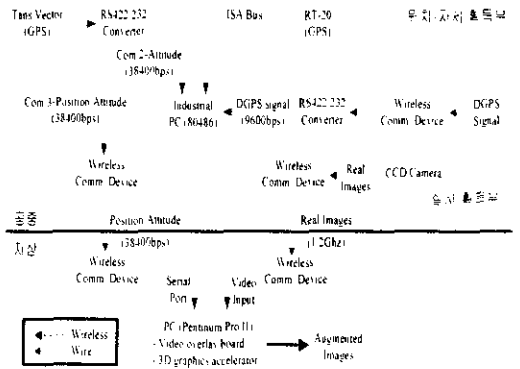 Tans Vector
(GPS)
RS422-232
Converter
ISA Bus
RT-20
(GPS)
위치·자세 획득부
Com 2-Attitude
(38400bps)
Com 3-Position Attitude
(38400bps)
Industrial
PC (80486)
DGPS signal
(9600bps)
RS422-232
Converter
Wireless
Comm Device
DGPS
Signal
Wireless
Comm Device
Wireless
Comm Device
Real
Images
CCD Camera
획득부
공중
Position Attitude
(38400bps)
Real Images
(1.2Ghz)
지상
Wireless
Comm Device
Wireless
Comm Device
Serial
Port
Video
Input
Wireless
Wire
PC (Pentinum Pro II)
- Video overlay board
- 3D graphics accelerator
Augmented
Images